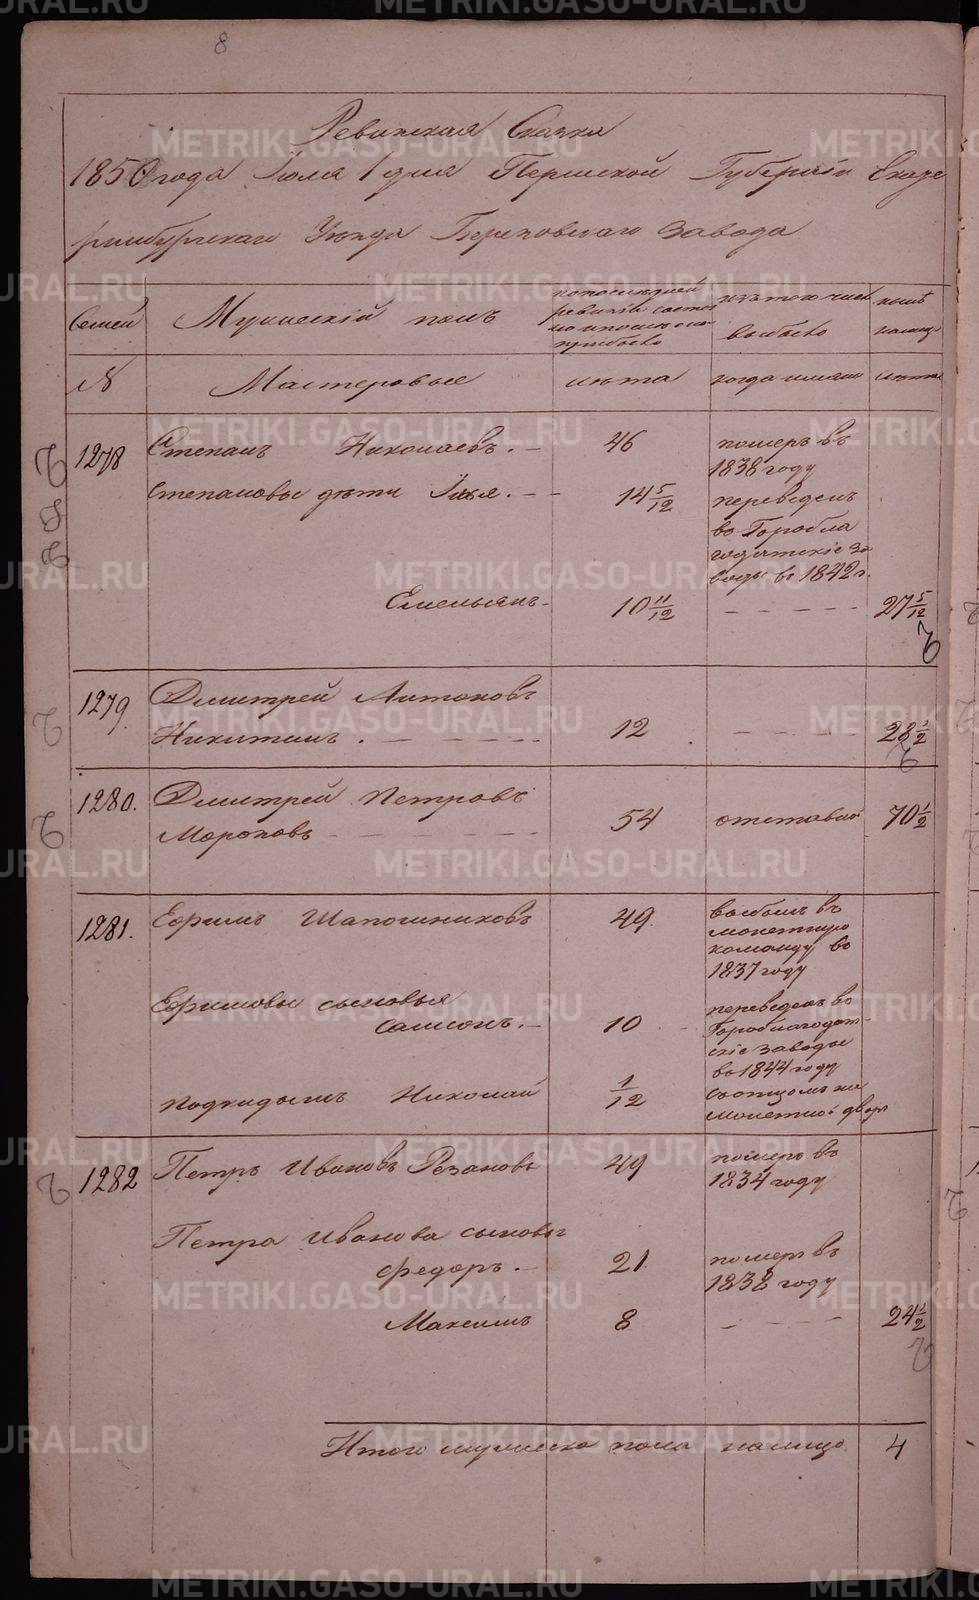 8
Ревизская Сказка
1850 года Июля 1 дня Пермской Губернии Екате
ринбургскаго Уезда Березовскаго завода
Семей
Мужескій полъ
по последней
ревизіи состоя
ло и после она
прибыло
изъ того числа
выбыло
ныне
налицо
№
Мастеровые
лета
когда имянно
лета
1278
Степанъ Николаевъ. –
46
померъ въ
1838 году
Степановы дети Илья. – –
14 5/12
переведенъ
въ Горобла
годатскіе за
воды въ 1842 г.
Емельянъ –
10 11/12
– – – – –
27 5/12
1279.
Дмитрей Антоновъ
Никитинъ. – – – – –
12
– – – –
28 1/2
1280.
Дмитрей Петровъ
Морозовъ – – – – –
54
отставной
70 1/2
1281.
Ефримъ Шапошниковъ
49
выбылъ въ
монетную
команду въ
1837 году
Ефримовы сыновья
Самсонъ. –
10
переведенъ въ
Гороблагодат–
скіе заводы
въ 1844 году
подкидышъ Николай
1/12
съ отцомъ на
монетной дворъ
1282
Петръ Ивановъ Резановъ
49
померъ въ
1834 году
Петра Иванова сыновья
Федоръ. –
21.
померъ въ
1838 году
Максимъ
8
– – – – –
24 1/2
Итого мужеска пола налицо
4
METRIKI.GASO-URAL.RU